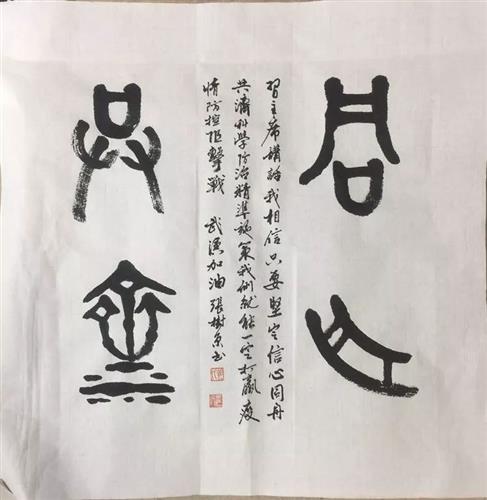 同舟
習主席講話我相信只要堅定信心同舟
共濟科學防治精準施策我們就能一定打贏疫
情防控阻擊戰 武漢加油 張樹
共濟